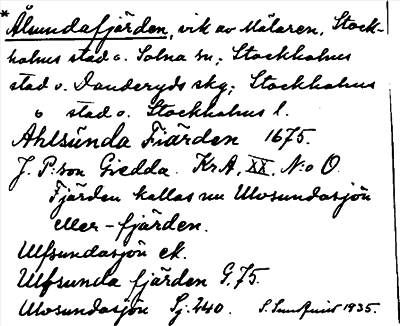 * Ålsundafjärden, vik av Mälaren, Stock-
holms stad o. Solna sn; Stockholms
stad o. Danderyds skg; Stockholms
o stad o. Stockholms l.
Ahlsúnda Fiärden 1675.
J. P:son Giedda. KrA, XX. N:o O.
Fjärden kallas nu Ulvsundasjön
eller -fjärden.
Ulfsundasjön ek.
Ulfsunda fjärden G. 75.
Ulvsundasjön Sj. 240. S. 1935.